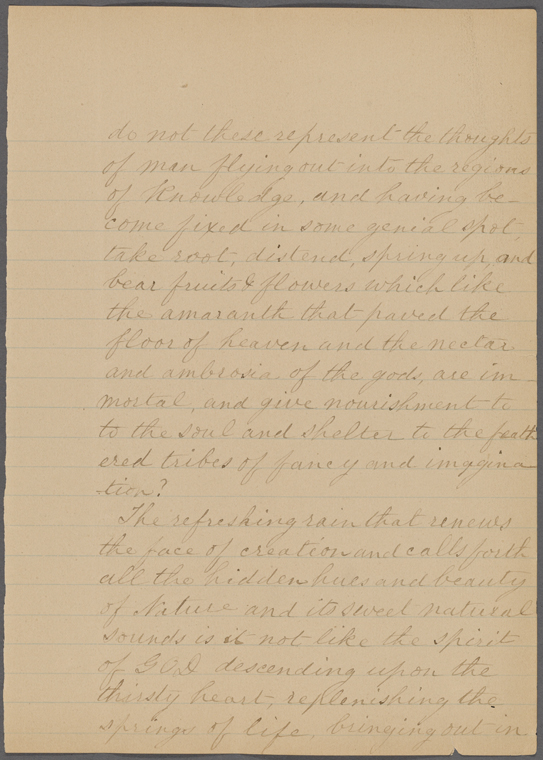 do not these represent the thoughts
of man flying out into the regions
of Knowledge, and having be-
come fixed in some genial spot,
take root, distend, spring up, and
bear fruits & flowers which like
the amaranth that paved the
floor of heaven and the nectar
and ambrosia of the gods, are im-
mortal, and give nourishment to
to the soul and shelter to the feath
ered tribes of fancy and imagina
-tion?
The refreshing rain that renews
the face of creation and calls forth
all the hidden hues and beauty
of Nature and its sweet natural
sounds is it not like the spirit
of GOD descending upon the
thirsty heart, replenishing the
springs of life, bringing out in